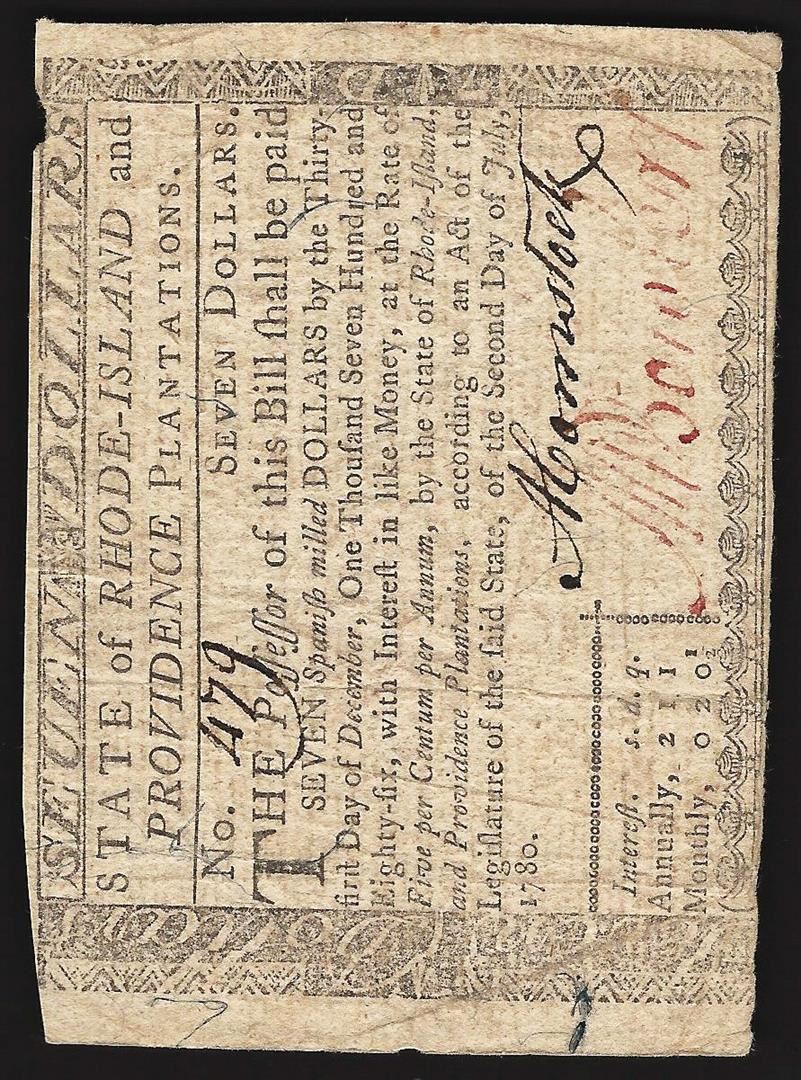 SEUEN DOLLARS
STATE of RHODE-ISLAND and
PROVIDENCE PLANTATIONS.
No. 479 SEVEN DOLLARS.
THE Poſſeſſor of this Bill ſhall be paid
SEVEN Spaniſh milled DOLLARS by the Thirty-
firſt Day of December, One Thouſand Seven Hundred and
Eighty-ſix, with Intereſt in like Money, at the Rate of
Five per Centum per Annum, by the State of Rhode-Iſland,
and Providence Plantations, according to an Act of the
Legiſlature of the ſaid State, of the Second Day of July,
1780.
Comstock
Intereſt. s. d. q.
Annually, 2 1 1
Monthly, 0 2 0 1/2